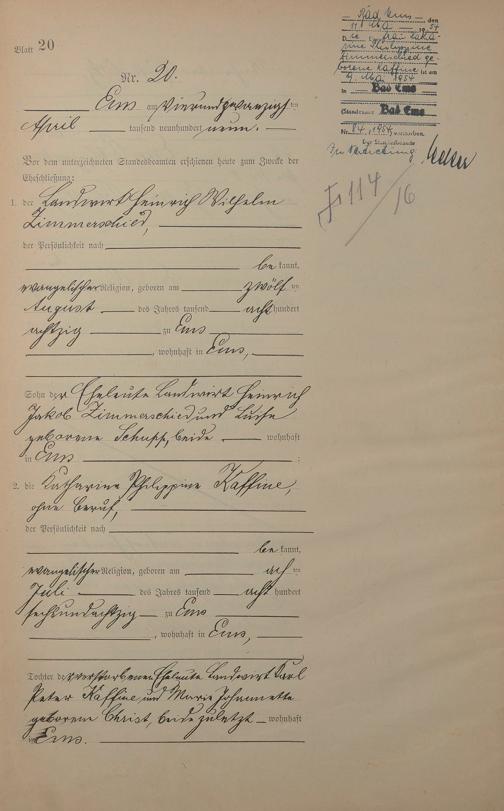 Blatt 20
Nr. 20.
Ems am vierundzwanzigsten
April tausend neunhundert neun.
Vor dem unterzeichneten Standesbeamten erschienen heute zum Zwecke der
Eheschließung:
1. der Landwirt Heinrich Wilhelm
Zimmerschied,
der Persönlichkeit nach
bekannt,
evangelischer Religion, geboren am zwölften
August des Jahres tausend achthundert
achtzig zu Ems
, wohnhaft in Ems,
Sohn der Eheleute Landwirt Heinrich
Jakob Zimmerschied und Luise
geborene Schupp, beide wohnhaft
in Ems
2. die Katharine Philippine Kaffine,
ohne Beruf,
der Persönlichkeit nach
bekannt,
evangelischer Religion, geboren am achten
Juli des Jahres tausend acht hundert
sechsundachtzig zu Ems
, wohnhaft in Ems,
Tochter der verstorbenen Eheleute Landwirt Karl
Peter Kaffine und Marie Johannette
geborene Christ, beide zuletzt wohnhaft
in Ems.
Bad Ems den
11. Mai 1954
Die Ehefrau Katha-
rine Philippine
Zimmerschied ge-
borene Kaffine ist am
9. Mai 1954
in Bad Ems
Standesamt Bad Ems
Nr. 84/1954, verstorben.
Der Standesbeamte
In Vertretung
114
/16